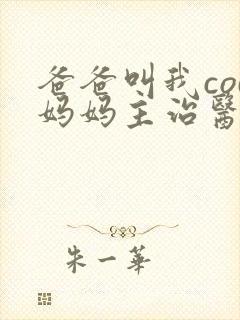 爸爸叫我co
妈妈主治醫
朱一華